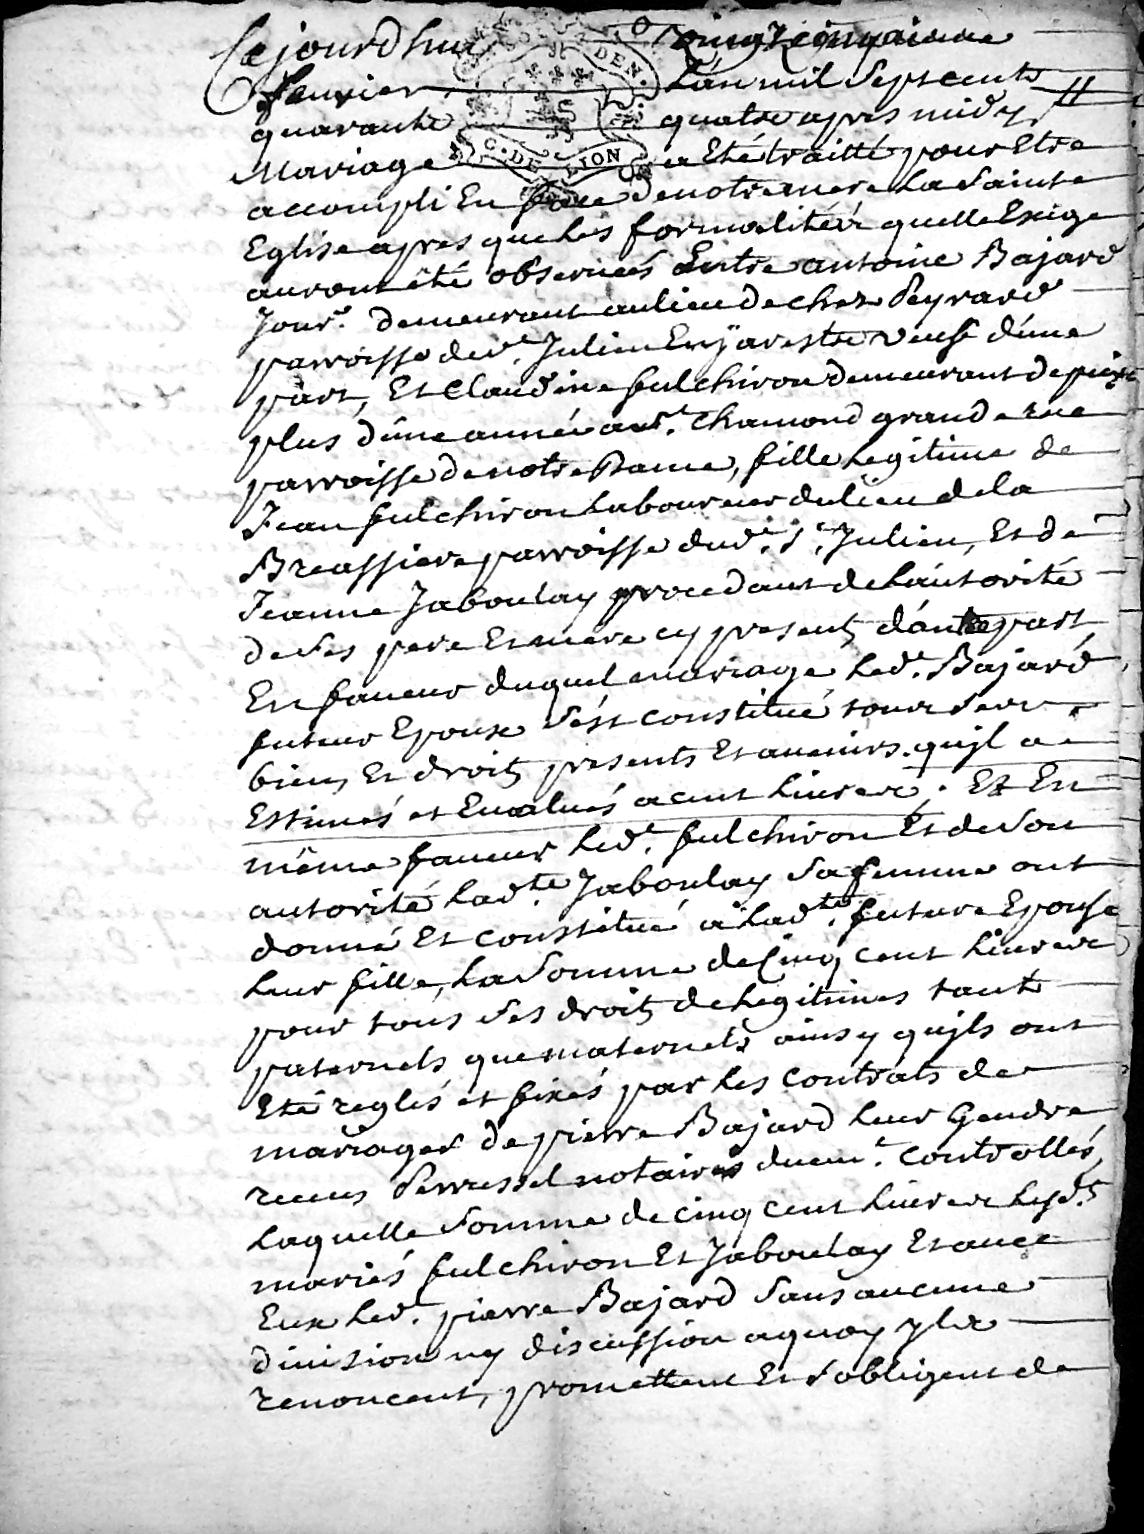 Cejourdhui vingt cinquieme
feuvrier Lan mil sept cents
quarante quatre apres midy //
Mariage a Eté traitté pour Etre
accompli En face de notre mere La Sainte
Eglise apres que Les formalitéz quelle Exige
auront êté observeés Entre antoine Bajard
Jour.r demeurant au lieu de chez Peyrard
parroisse de s.t Julien En Jarestz veuf d'une
part, Et Claudine fulchiron demeurant depuis
plus d'une année a s.t Chamond grande rue
parroisse de notre Dame, fille Legitime de
Jean fulchiron Laboureur du lieu de la
Breassiere parroisse dud.t S.t Julien, Et de
Jeanne Jaboulay procedant de L'autorité
de Ses pere Et mere cy presents d'autre part
En faveur duquel mariage Led.t Bajard
futeur Epoux s'est constitué tous Ses
biens Et droits presents Et avenirs qu'jl a
Estimés et Evalués a cent Livres. Et En
même faveur Led.t fulchiron Et de Son
autorité Lad.te Jaboulay Sa femme ont
donné Et constitué a Lad.te future Epouse
Leur fille, La Somme de Cinq cent Livres
pour tous Ses droits de Legitimes tants
paternels que maternels ainsy qu'jls ont
Eté reglés et fixés par Les contrats de
mariages de pierre Bajard Leur Gendre
receus Perrussel notaire duem.t controllés,
Laquelle Somme de cinq cent Livres Lesd.ts
mariés fulchiron Et Jaboulay Et avec
Eux Led.t pierre Bajard Sans aucune
division ny discussion a quoy yls
renoncent, promettent Et S'obligent de
C. DE LION